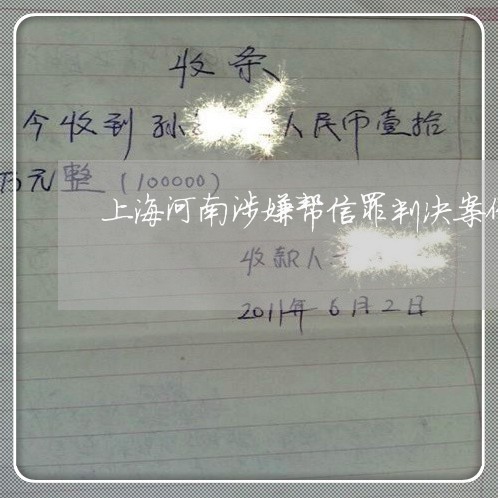 收条
今收到孙 人民币壹拾
万元整（100000）
上海河南涉嫌帮信罪判决案
收款人
2011年6月2日